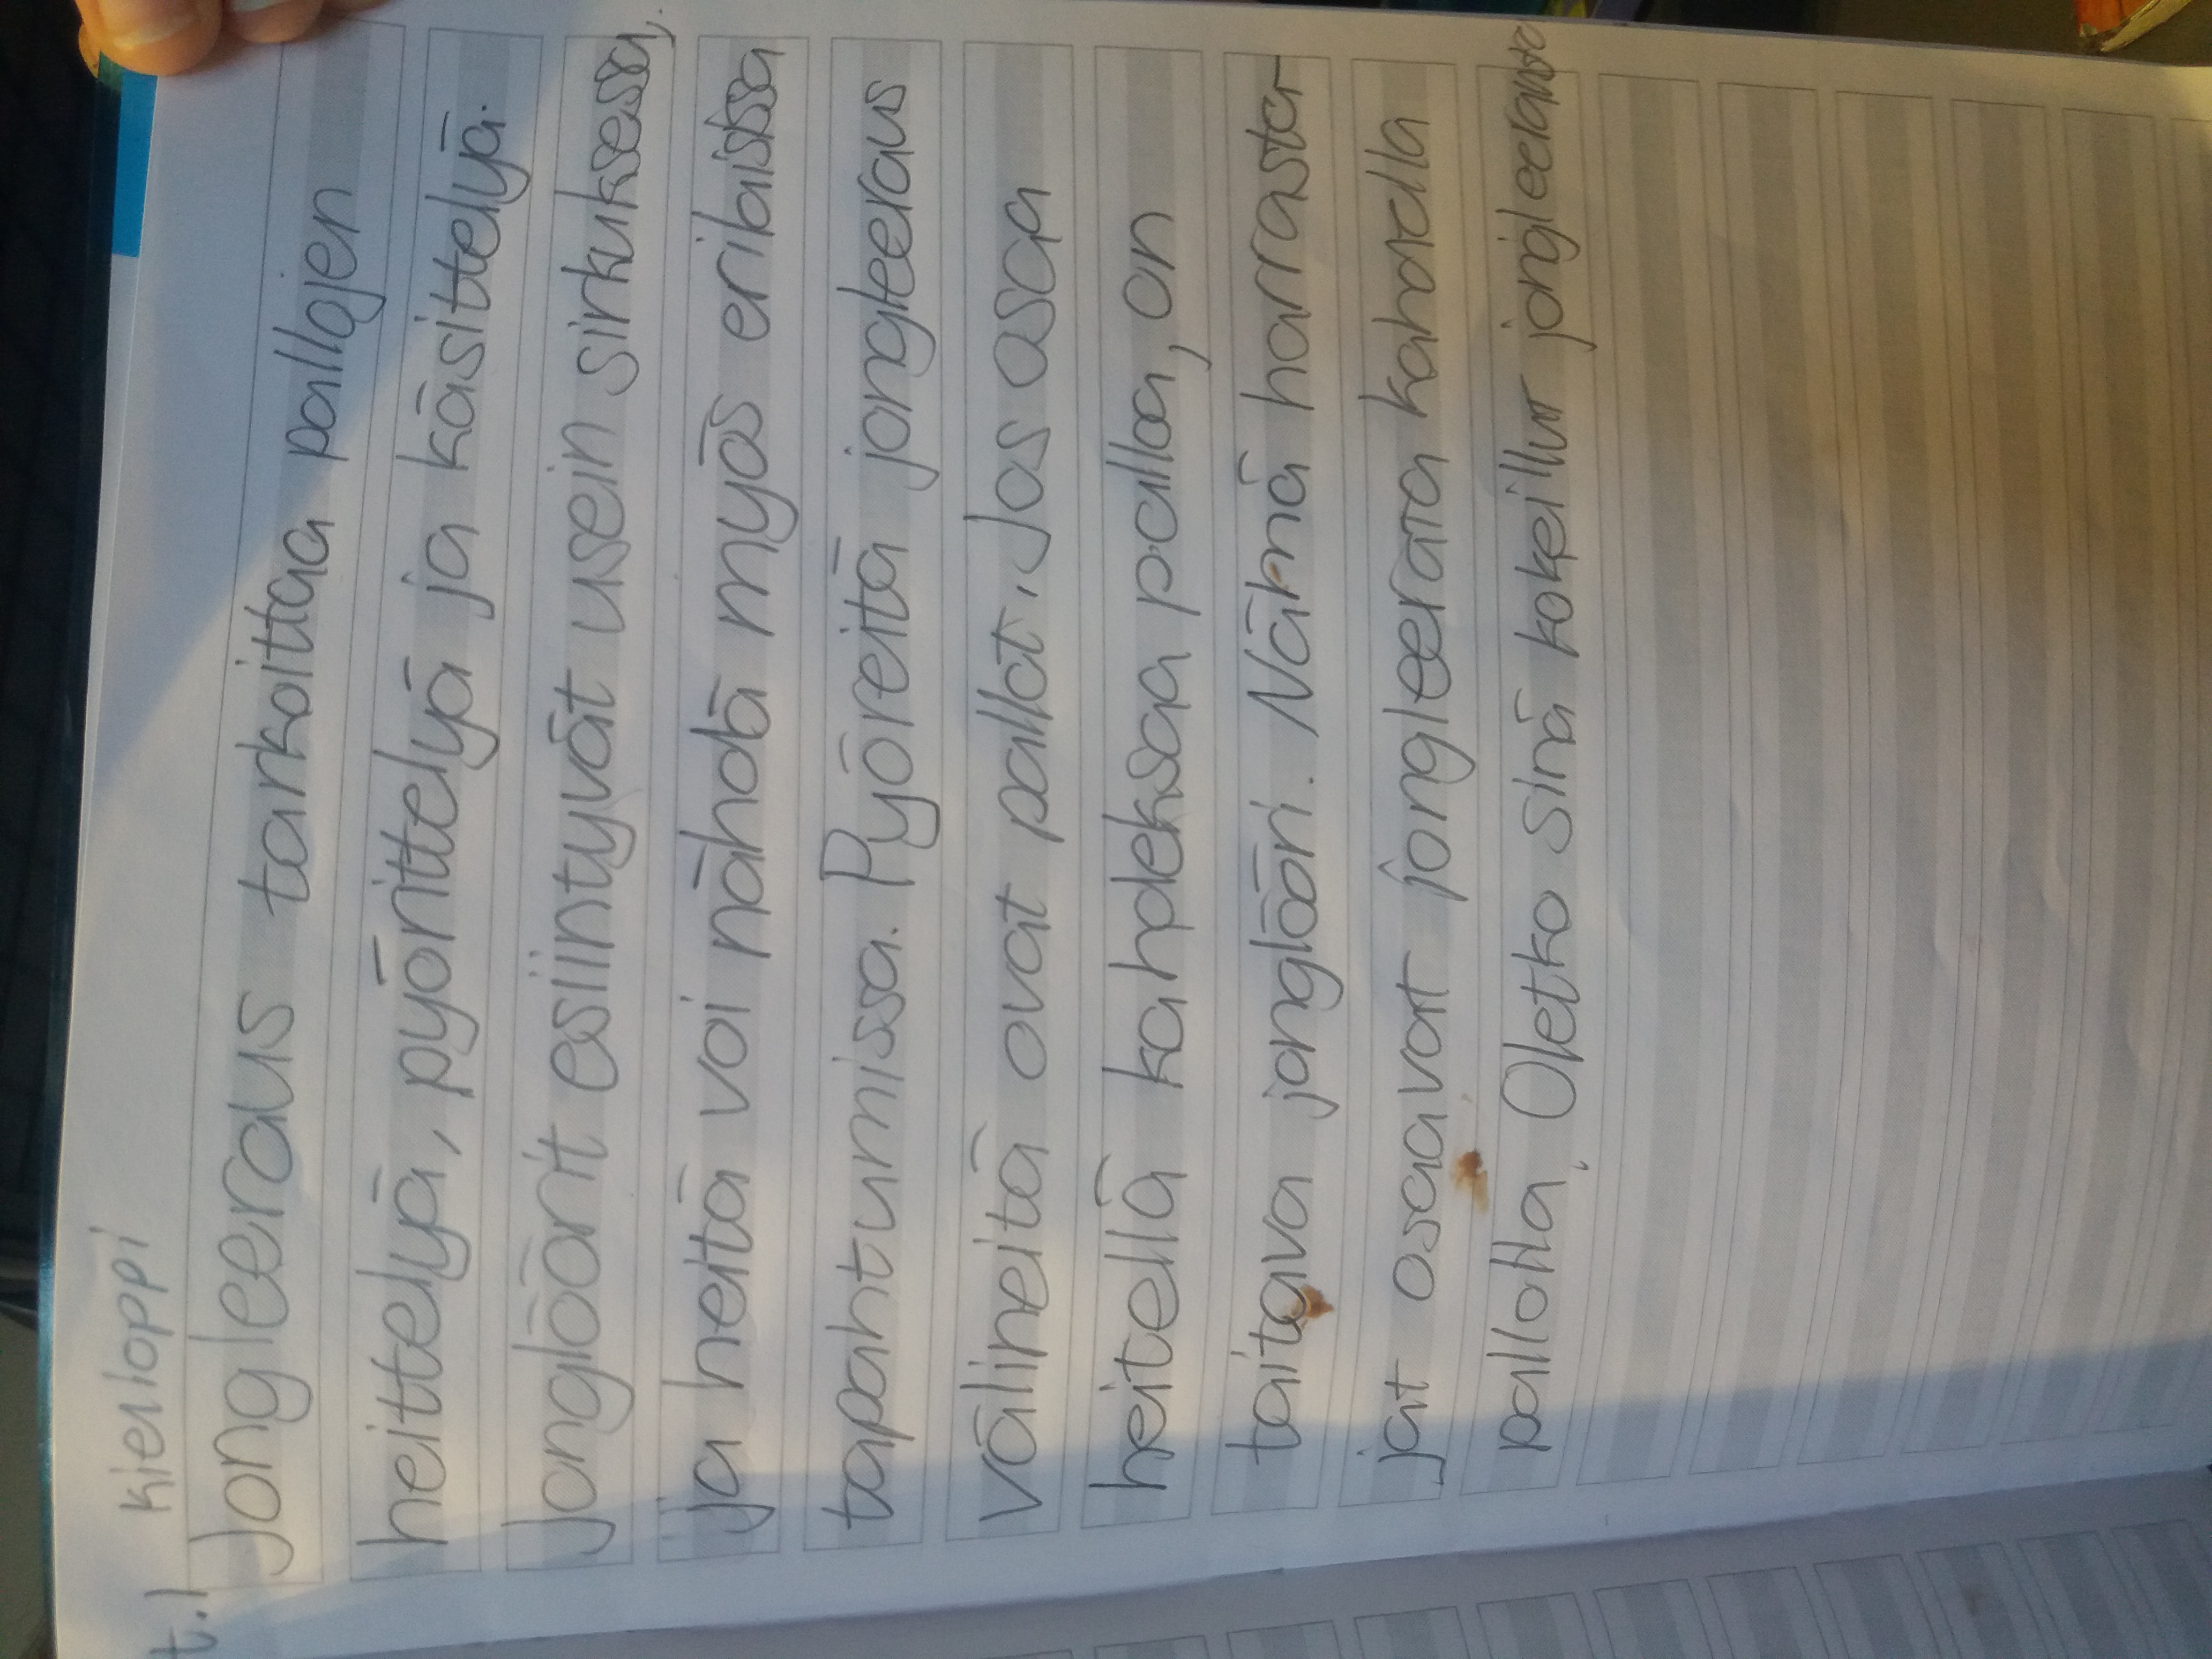 kienloppi
t.1 Jongleeraus tarkoittaa pallojen
heittelyä, pyörittelyä ja käsittelyä.
Jonglöörit esiintyvät usein sirkuksessa,
ja heitä voi nähdä myös erilaissa
tapahtumissa. Pyöreitä jongleeraus
välineitä ovat pallot. Jos osaa
heitellä kahdeksaa palloa, on
taitava jonglööri. Nämä harrasta-
jat osaavat jongleerata kahdella
pallolla. Oletko sinä kokeillut